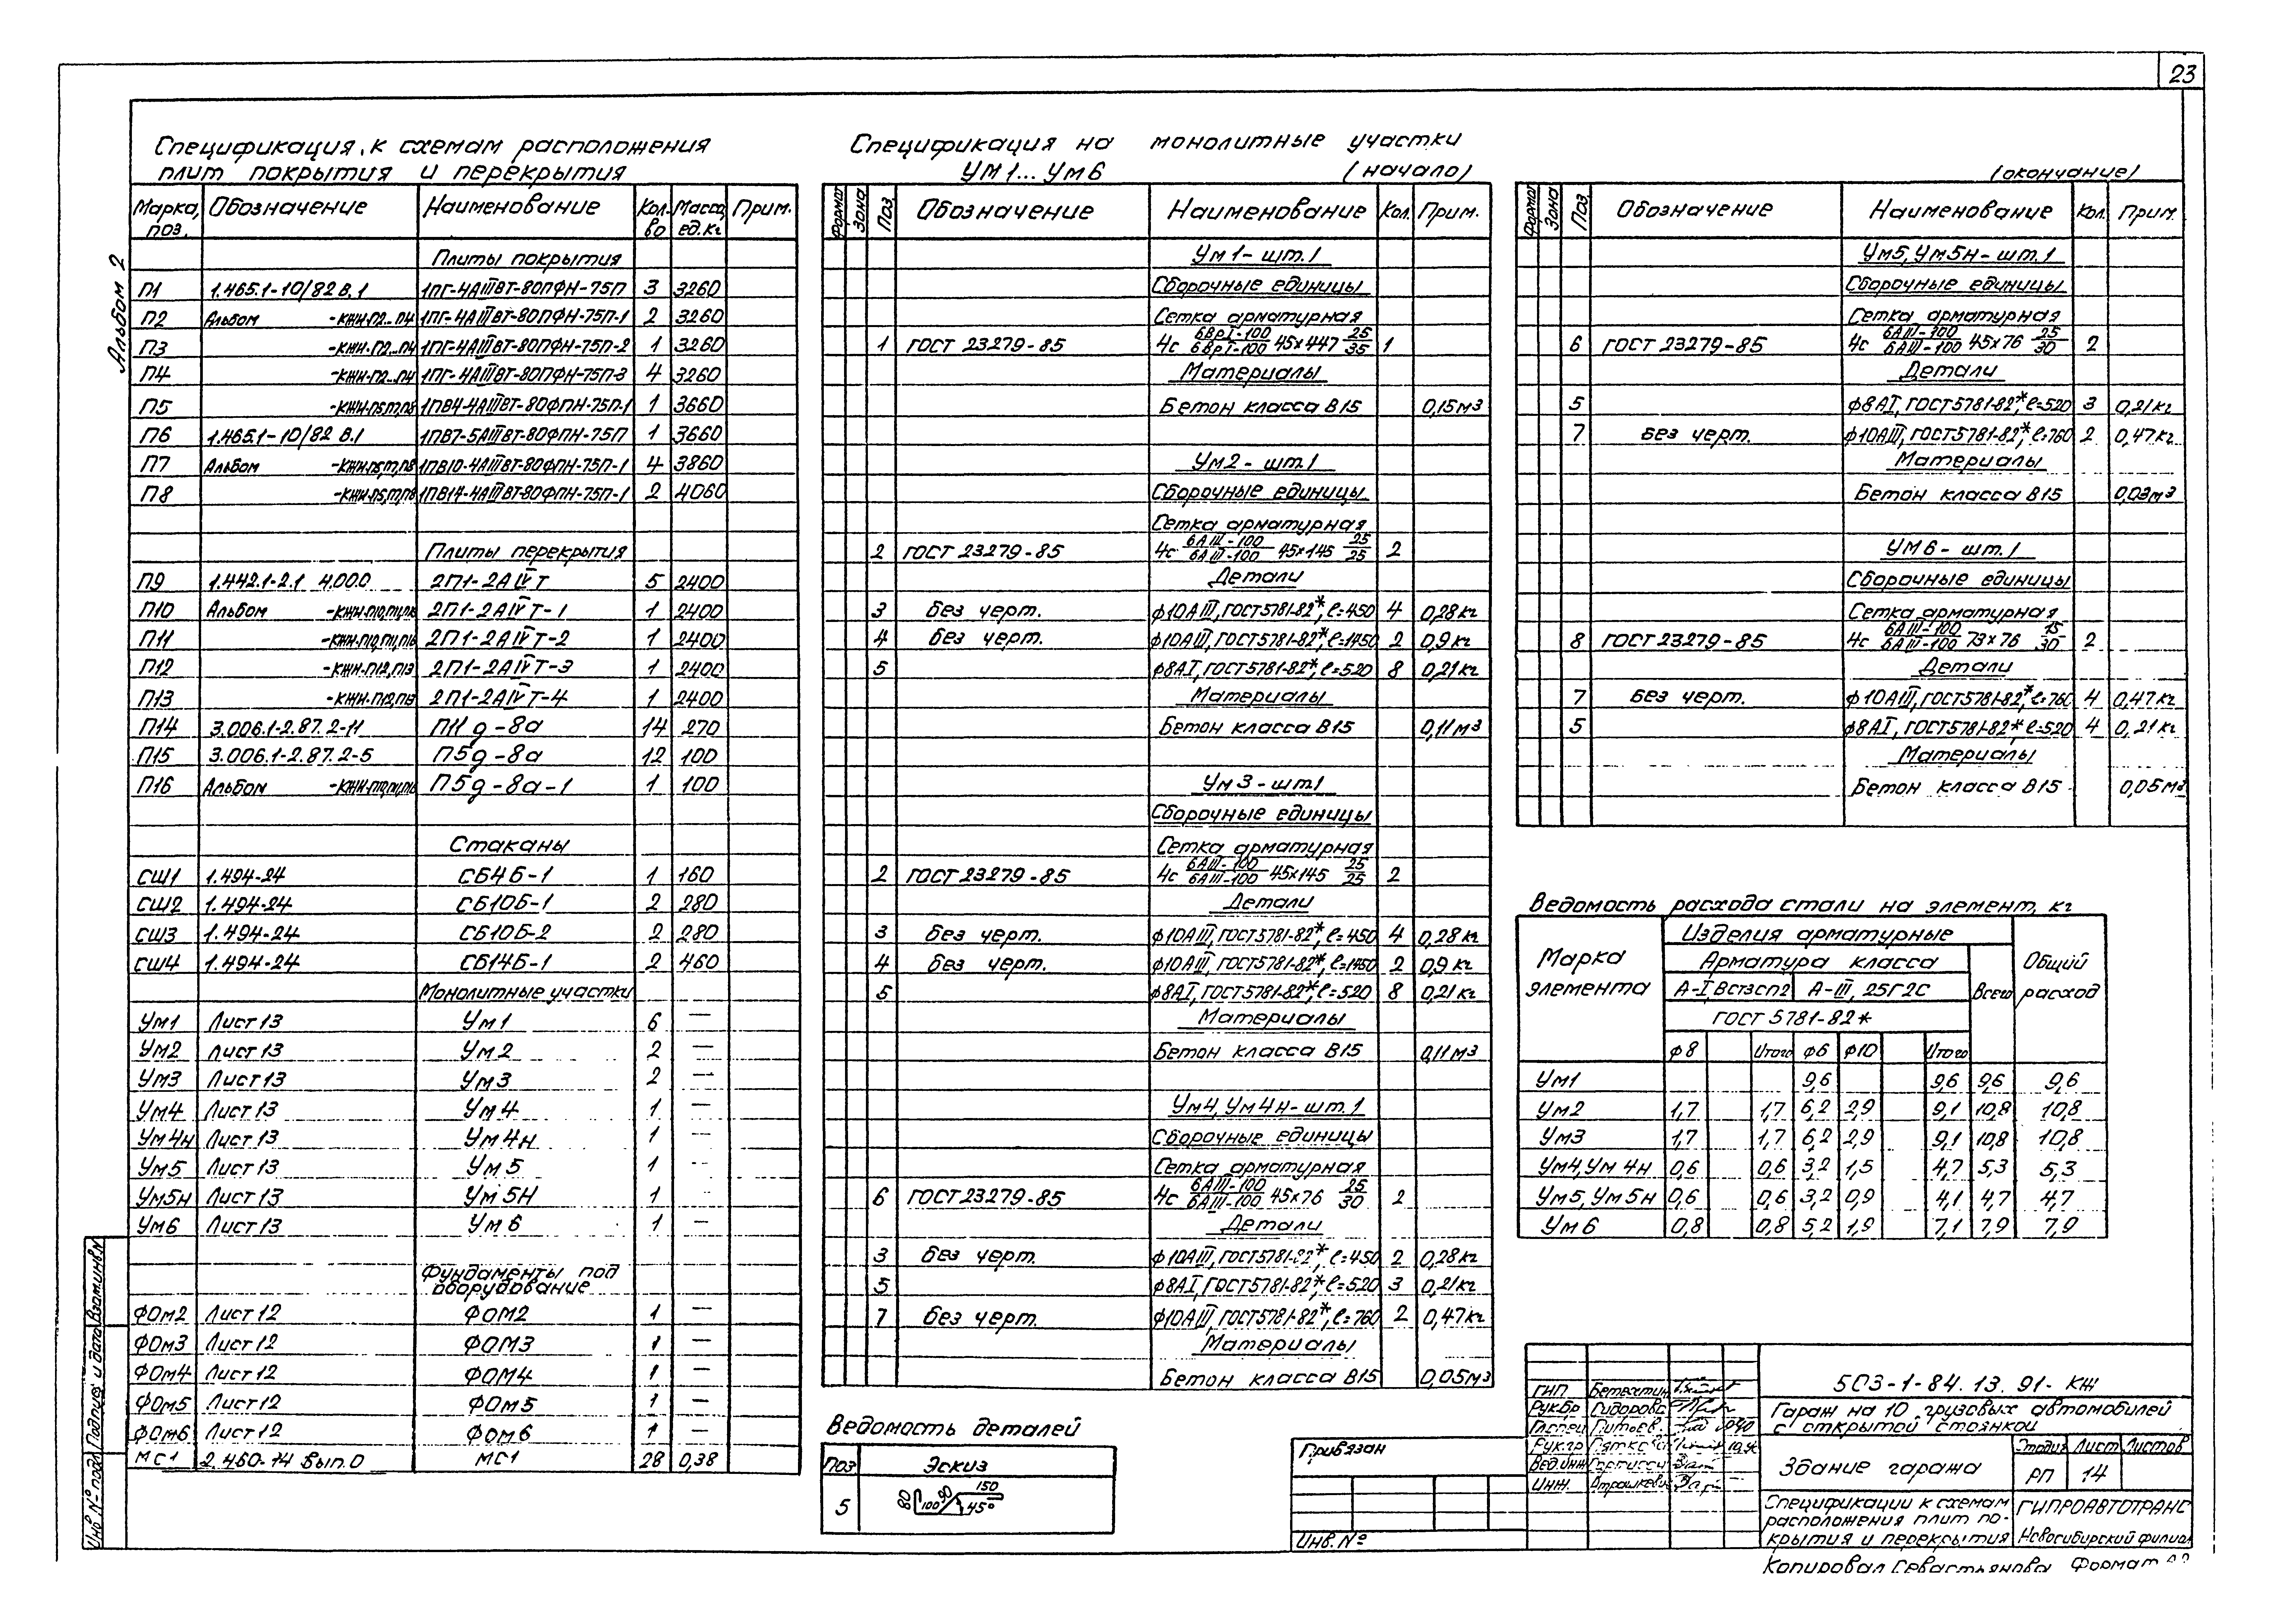 23
Альбом 2
Спецификация к схемам расположения
плит покрытия и перекрытия
Марка, поз. Обозначение Наименование Кол-во Масса ед. кг Прим.
Плиты покрытия
П1 1.465.1-10/82 в.1 1ПГ-4АIIIВТ-80ПФН-75П 3 3260
П2 Альбом -КЖИ-П2...П4 1ПГ-4АIIIВТ-80ПФН-75П-1 2 3260
П3 -КЖИ-П2...П4 1ПГ-4АIIIВТ-80ПФН-75П-2 1 3260
П4 -КЖИ-П2...П4 1ПГ-4АIIIВТ-80ПФН-75П-3 4 3260
П5 -КЖИ-П5,П7,П8 1ПВ4-4АIIIВТ-80ФПН-75П-1 1 3660
П6 1.465.1-10/82 в.1 1ПВ7-5АIIIВТ-80ФПН-75П 1 3660
П7 Альбом -КЖИ-П5,П7,П8 1ПВ10-4АIIIВТ-80ФПН-75П-1 4 3860
П8 -КЖИ-П5,П7,П8 1ПВ14-4АIIIВТ-80ФПН-75П-1 2 4060
Плиты перекрытия
П9 1.442.1-2.1 4.000 2П1-2АIVТ 5 2400
П10 Альбом -КЖИ-П10,П11,П16 2П1-2АIVТ-1 1 2400
П11 -КЖИ-П10,П11,П16 2П1-2АIVТ-2 1 2400
П12 -КЖИ-П12,П13 2П1-2АIVТ-3 1 2400
П13 -КЖИ-П12,П13 2П1-2АIVТ-4 1 2400
П14 3.006.1-2.87.2-11 П11д-8а 14 270
П15 3.006.1-2.87.2-5 П5д-8а 12 100
П16 Альбом -КЖИ-П10,П11,П16 П5д-8а-1 1 100
Стаканы
СШ1 1.494-24 СБ4Б-1 1 160
СШ2 1.494-24 СБ10Б-1 2 280
СШ3 1.494-24 СБ10Б-2 2 280
СШ4 1.494-24 СБ14Б-1 2 460
Монолитные участки
Ум1 Лист 13 Ум1 6 —
Ум2 Лист 13 Ум2 2 —
Ум3 Лист 13 Ум3 2 —
Ум4 Лист 13 Ум4 1 —
Ум4н Лист 13 Ум4н 1 —
Ум5 Лист 13 Ум5 1 —
Ум5н Лист 13 Ум5Н 1 —
Ум6 Лист 13 Ум6 1 —
Фундаменты под
оборудование
ФОм2 Лист 12 ФОМ2 1 —
ФОм3 Лист 12 ФОМ3 1 —
ФОм4 Лист 12 ФОМ4 1 —
ФОм5 Лист 12 ФОм5 1 —
ФОм6 Лист 12 ФОм6 1 —
МС1 2.460-14 Вып.0 МС1 28 0,38
Спецификация на монолитные участки
УМ1... Ум6 (начало)
Формат Зона Поз. Обозначение Наименование Кол. Прим.
Ум1- шт.1
Сборочные единицы
Сетка арматурная
1 ГОСТ 23279-85 4с 6ВрI-100/6ВрI-100 45х447 25/35 1
Материалы
Бетон класса В15 0,15м3
Ум2- шт.1
Сборочные единицы
Сетка арматурная
2 ГОСТ 23279-85 4с 6АIII-100/6АIII-100 45х145 25/25 2
Детали
3 без черт. ф10АIII, ГОСТ5781-82*, ℓ=450 4 0,28кг
4 без черт. ф10АIII, ГОСТ5781-82*, ℓ=1450 2 0,9кг
5 ф8АI, ГОСТ5781-82*, ℓ=520 8 0,21кг
Материалы
Бетон класса В15 0,11м3
Ум3-шт.1
Сборочные единицы
Сетка арматурная
2 ГОСТ 23279-85 4с 6АIII-100/6АIII-100 45х145 25/25 2
Детали
3 без черт. ф10АIII, ГОСТ5781-82*, ℓ=450 4 0,28кг
4 без черт. ф10АIII, ГОСТ5781-82*, ℓ=1450 2 0,9кг
5 ф8АI, ГОСТ5781-82*, ℓ=520 8 0,21кг
Материалы
Бетон класса В15 0,11м3
Ум4, Ум4н-шт.1
Сборочные единицы
Сетка арматурная
6 ГОСТ 23279-85 4с 6АIII-100/6АIII-100 45х76 25/30 2
Детали
3 без черт. ф10АIII, ГОСТ5781-82*, ℓ=450 2 0,28кг
5 ф8АI, ГОСТ5781-82*, ℓ=520 3 0,21кг
7 без черт. ф10АIII, ГОСТ5781-82*, ℓ=760 2 0,47кг
Материалы
Бетон класса В15 0,05м3
Ведомость деталей
Поз Эскиз
5 80 100 90 150 45°
(окончание)
Формат Зона Поз. Обозначение Наименование Кол. Прим.
Ум5, Ум5н-шт.1
Сборочные единицы
Сетка арматурная
6 ГОСТ 23279-85 4с 6АIII-100/6АIII-100 45х76 25/30 2
Детали
5 ф8АI, ГОСТ5781-82*, ℓ=520 3 0,21кг
7 без черт. ф10АIII, ГОСТ5781-82*, ℓ=760 2 0,47кг
Материалы
Бетон класса В15 0,03м3
УМ6- шт.1
Сборочные единицы
Сетка арматурная
8 ГОСТ 23279-85 4с 6АIII-100/6АIII-100 73х76 15/30 2
Детали
7 без черт. ф10АIII, ГОСТ5781-82*, ℓ=760 4 0,47кг
5 ф8АI, ГОСТ5781-82*, ℓ=520 4 0,21кг
Материалы
Бетон класса В15 0,05м3
Ведомость расхода стали на элемент, кг
Марка элемента Изделия арматурные Общий расход
Арматура класса Всего
А-I, Вст3сп2 А-III, 25Г2С
ГОСТ 5781-82*
ф8 Итого ф6 ф10 Итого
Ум1 9,6 9,6 9,6 9,6
Ум2 1,7 1,7 6,2 2,9 9,1 10,8 10,8
Ум3 1,7 1,7 6,2 2,9 9,1 10,8 10,8
Ум4, Ум4н 0,6 0,6 3,2 1,5 4,7 5,3 5,3
Ум5, Ум5н 0,6 0,6 3,2 0,9 4,1 4,7 4,7
Ум6 0,8 0,8 5,2 1,9 7,1 7,9 7,9
Привязан
Инв. №
ГИП
Рук.бр Сидорова
Гл.спец
Рук.гр
Вед.инж
Инж.
503-1-84.13.91- КЖ
Гараж на 10 грузовых автомобилей
с открытой стоянкой
Здание гаража
Стадия Лист Листов
РП 14
Спецификации к схемам
расположения плит по-
крытия и перекрытия
ГИПРОАВТОТРАНС
Новосибирский филиал
Копировал Севастьянова Формат
Инв. № подл. Подпись и дата Взам.инв.№